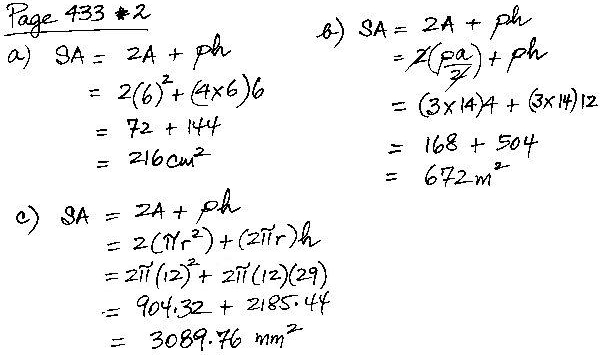 Page 433 #2
a) SA = 2A + ph
= 2(6)² + (4×6)6
= 72 + 144
= 216 cm²
b) SA = 2A + ph
= 2(pa/2) + ph
= (3×14)4 + (3×14)12
= 168 + 504
= 672 m²
c) SA = 2A + ph
= 2(πr²) + (2πr)h
= 2π(12)² + 2π(12)(29)
= 904.32 + 2185.44
= 3089.76 mm²